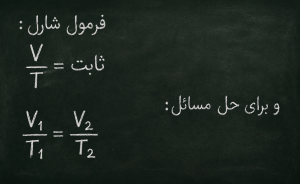 فرمول شارل:
V/T = ثابت
و برای حل مسائل:
V₁/T₁ = V₂/T₂